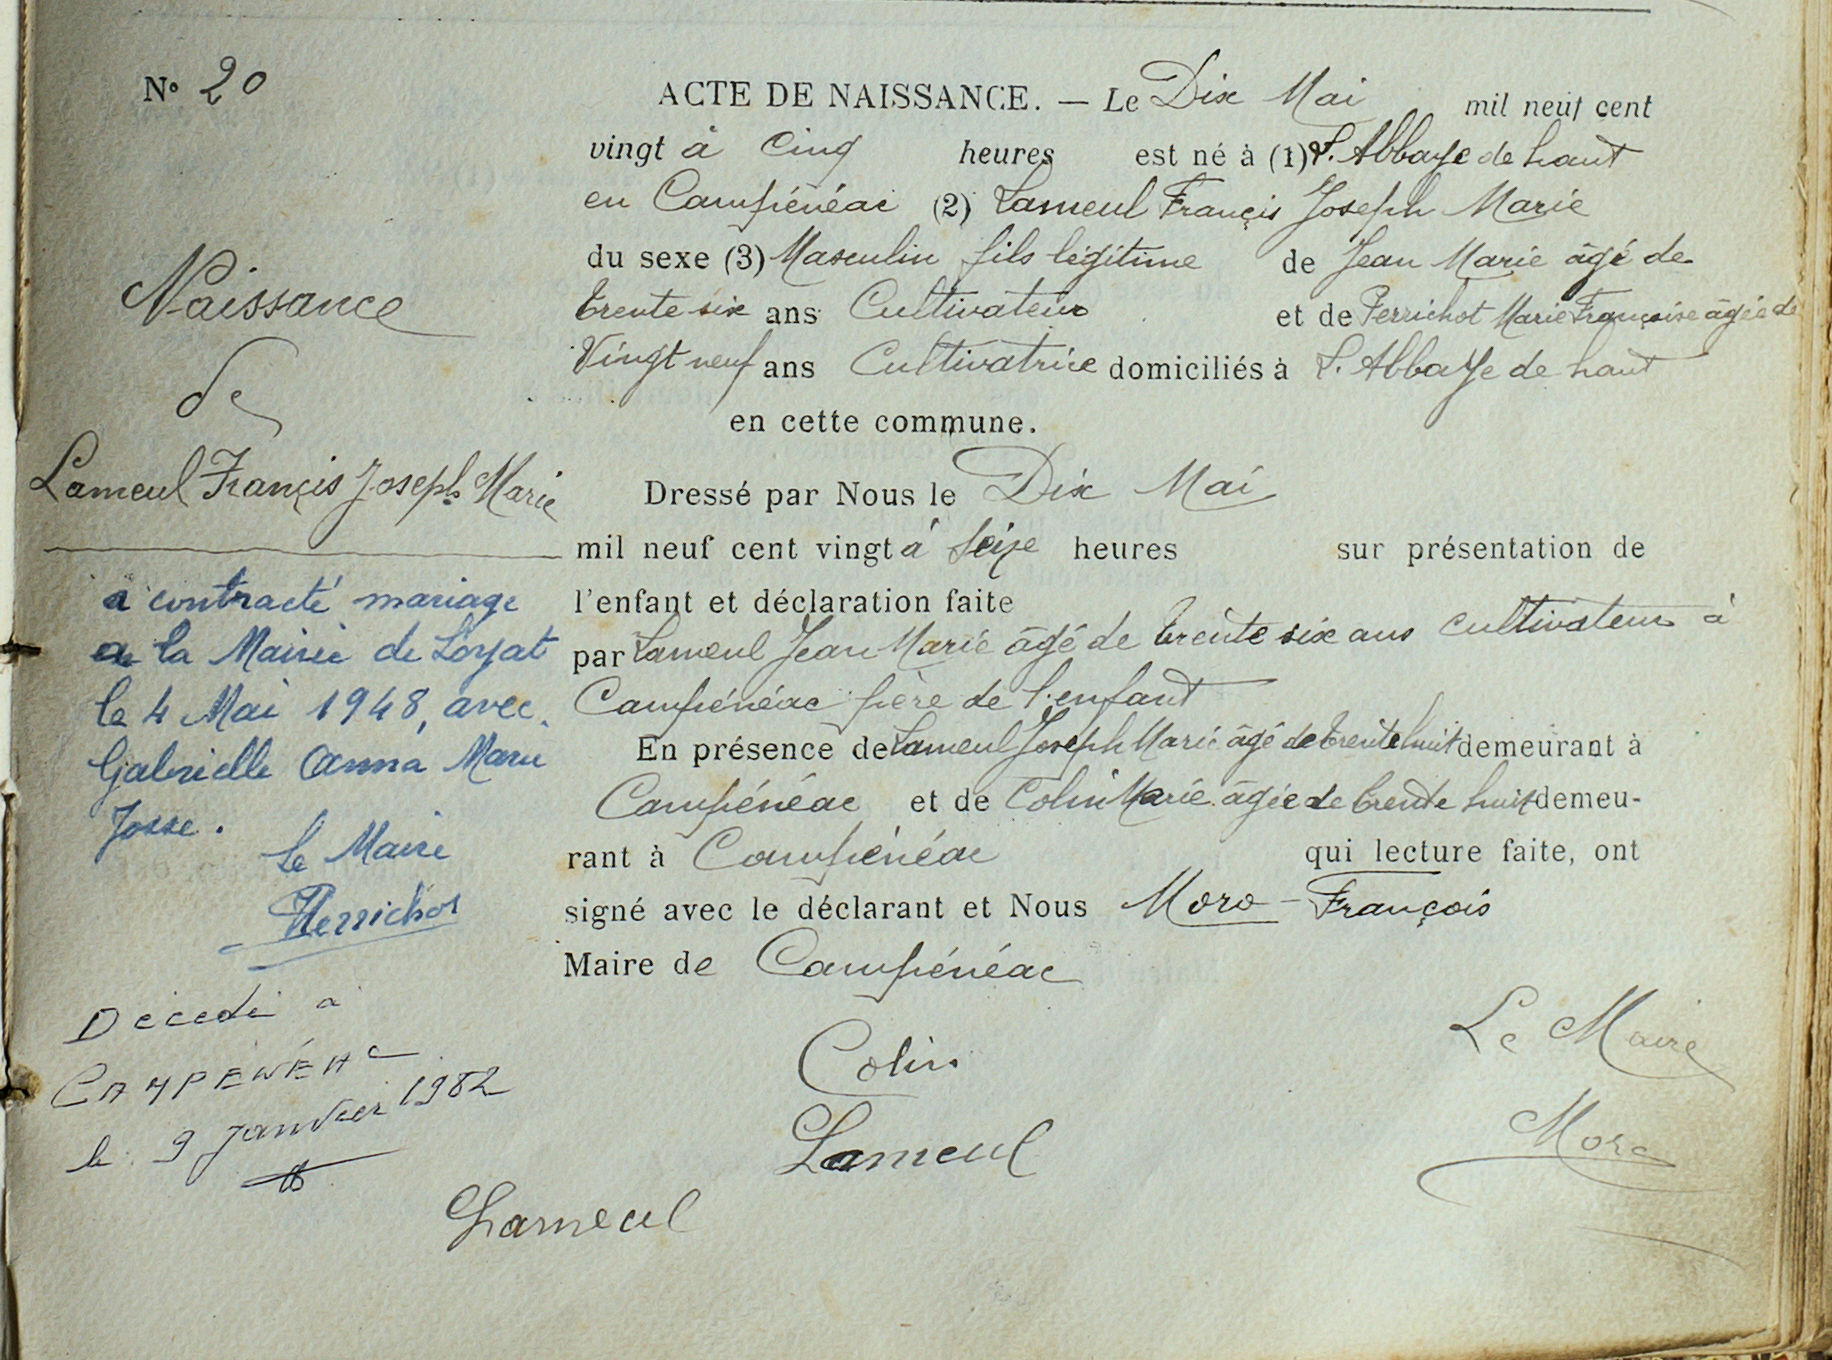 N° 20
Naissance
de
Lameul Françis Joseph Marie
a contracté mariage
a la Mairie de Loyat
le 4 Mai 1948, avec
Gabrielle Anna Marie
Josse.
Le Maire
Perrichot
Décédé à
CAMPÉNÉAC
le 9 Janvier 1982
ACTE DE NAISSANCE. — Le Dix Mai mil neuf cent
vingt à Cinq heures est né à (1) L'Abbaye de haut
en Campénéac (2) Lameul Françis Joseph Marie
du sexe (3) Masculin fils légitime de Jean Marie âgé de
trente six ans Cultivateur et de Perrichot Marie Françoise âgée de
Vingt neuf ans Cultivatrice domiciliés à L'Abbaye de haut
en cette commune.
Dressé par Nous le Dix Mai
mil neuf cent vingt à Seize heures sur présentation de
l'enfant et déclaration faite
par Lameul Jean Marie âgé de trente six ans cultivateur à
Campénéac père de l'enfant
En présence de Lameul Joseph Marie âgé de trente huit demeurant à
Campénéac et de Colin Marie âgée de trente huit demeu-
rant à Campénéac qui lecture faite, ont
signé avec le déclarant et Nous Moro - François
Maire de Campénéac
Colin
Le Maire
Lameul
Moro
Lameul